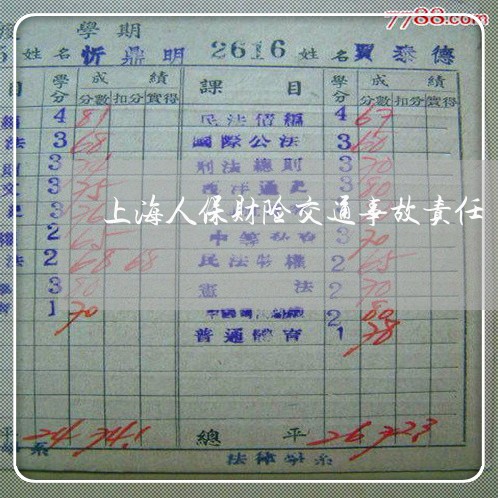 7788.com
學期
姓名 忻鼎明 2616 姓名 賈泰德
目 學分 成績 課目 學分 成績
分數 扣分 實得 分數 扣分 實得
4 81 民法債編 4 67
法 3 68 國際公法 3 60
3 刑法總則 3 70
3 75 西洋通史 3 80
上海人保財險交通事故責任
2 65 3 70
法 2 68 68 民法物權 2 65
3 80 憲法 2 70
1 70 2 80
普通體育 1 78
平 24 74.1 總平 26 72.3
系 法律學系